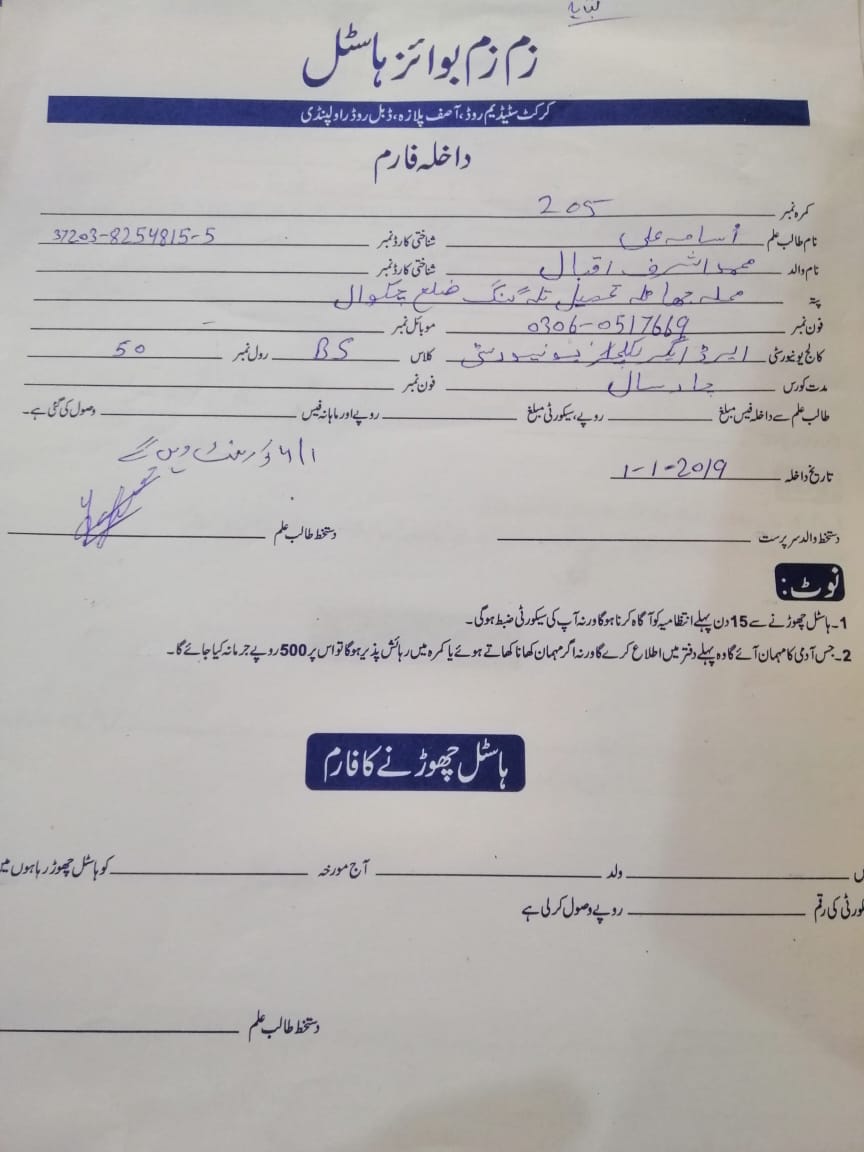 بقایا
زم زم بوائز ہاسٹل
کرکٹ سٹیڈیم روڈ، آصف پلازہ، ڈبل روڈ راولپنڈی
داخلہ فارم
کمرہ نمبر 205
نام طالب علم اُسامہ علی شناختی کارڈ نمبر 37203-8254815-5
نام والد محمد اشرف اقبال شناختی کارڈ نمبر
پتہ محلہ جھاٹلہ تحصیل تلہ گنگ ضلع چکوال
فون نمبر 0306-0517669 موبائل نمبر -
کالج یونیورسٹی ایرڈ ایگریکلچر یونیورسٹی کلاس BS رول نمبر 50
مدت کورس چار سال فون نمبر
طالب علم سے داخلہ فیس مبلغ روپے، سیکورٹی مبلغ روپے اور ماہانہ فیس وصول کی گئی ہے۔
دیں گے
تاریخ داخلہ 1-1-2019
دستخط والد سرپرست دستخط طالب علم
نوٹ:
1۔ ہاسٹل چھوڑنے سے 15 دن پہلے انتظامیہ کو آگاہ کرنا ہوگا ورنہ آپ کی سیکورٹی ضبط ہوگی۔
2۔ جس آدمی کا مہمان آئے گا وہ پہلے دفتر میں اطلاع کرے گا ورنہ اگر مہمان کھانا کھاتے ہوئے یا کمرہ میں رہائش پذیر ہوگا تو اس پر 500 روپے جرمانہ کیا جائے گا۔
ہاسٹل چھوڑنے کا فارم
ولد آج مورخہ کو ہاسٹل چھوڑ رہا ہوں
کی رقم روپے وصول کر لی ہے
دستخط طالب علم